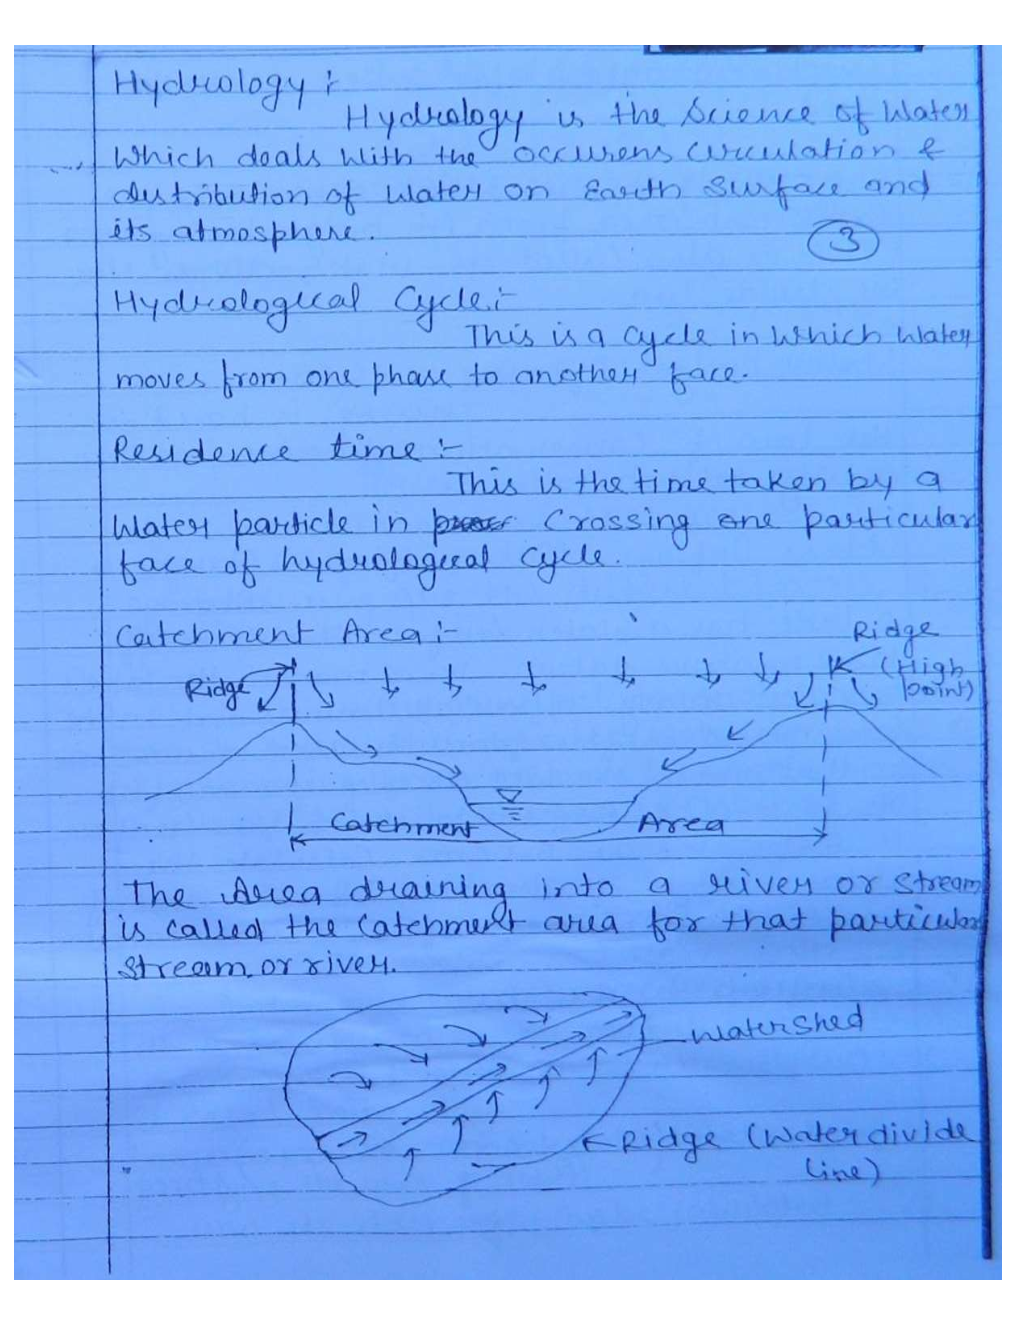 Hydrology :-
Hydrology is the Science of Water
Which deals with the occurens circulation &
distribution of water on Earth Surface and
its atmosphere.
3
Hydrological Cycle :-
This is a cycle in which water
moves from one phase to another face.
Residence time :-
This is the time taken by a
Water particle in crossing one particular
face of hydrological cycle.
Catchment Area :-
Ridge
(High
point)
Ridge
Catchment Area
The Area draining into a river or stream
is called the catchment area for that particular
stream or river.
watershed
Ridge (Water divide
line)